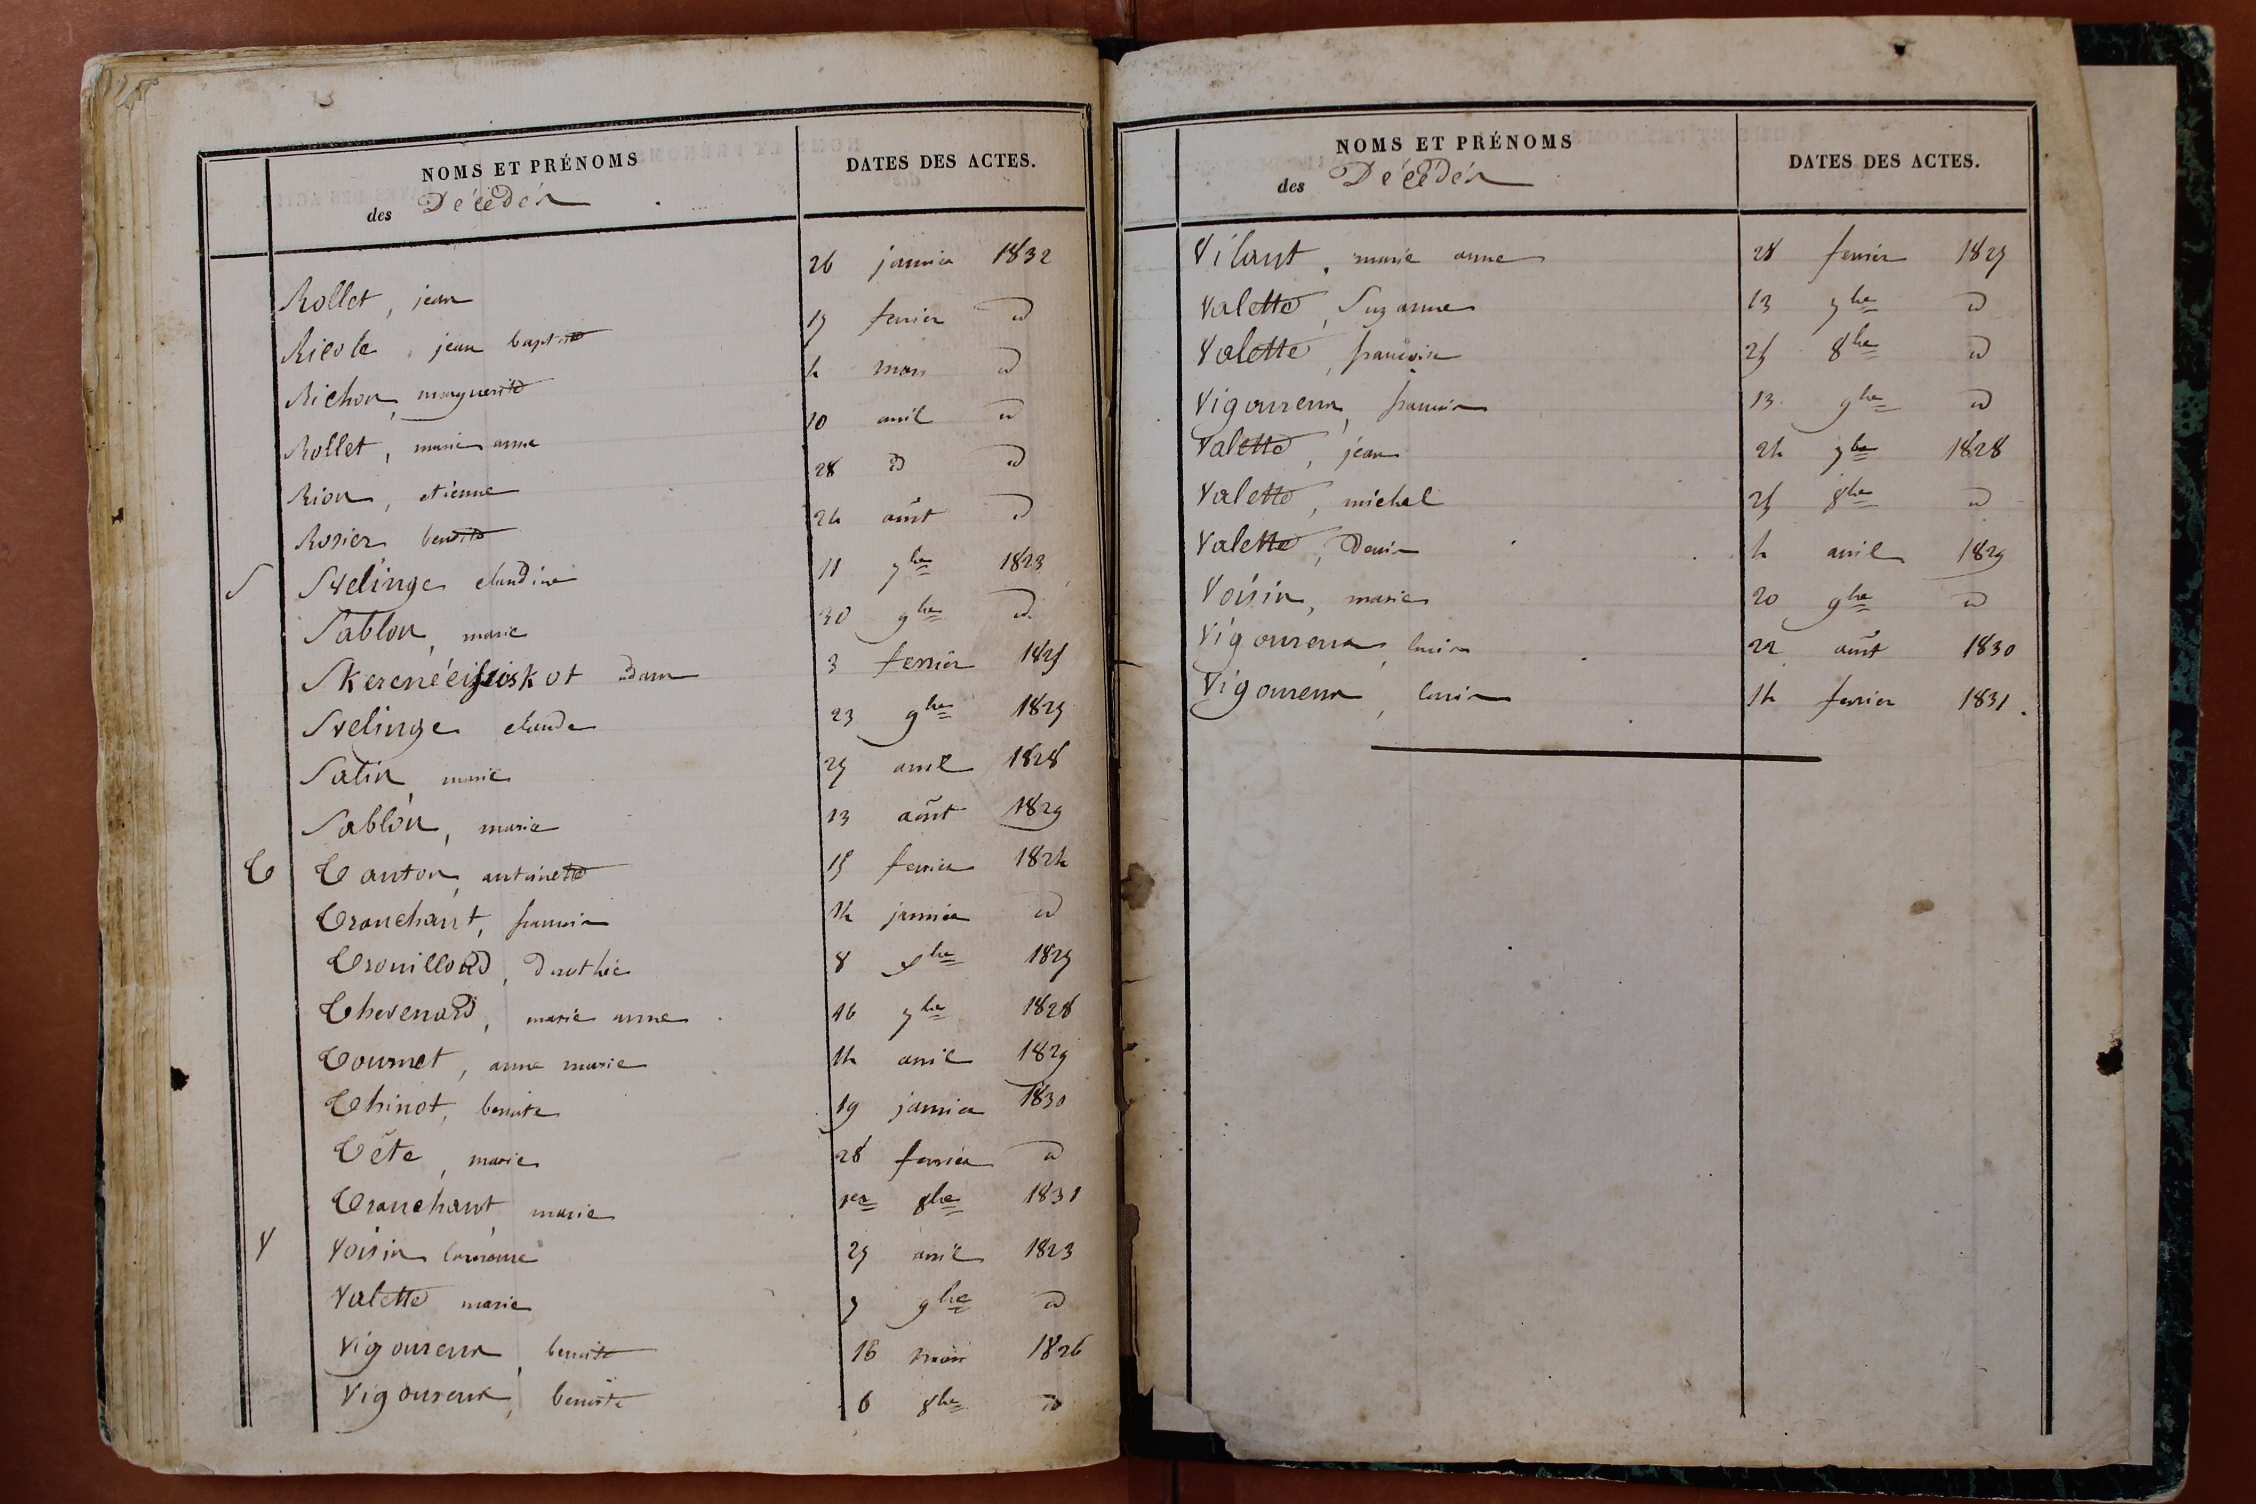 NOMS ET PRÉNOMS
DATES DES ACTES.
des Décédés
Rollet, jean 26 janvier 1832
Ricole, jean baptiste 17 fevrier id
Richon, marguerite 4 mars id
Rollet, marie anne 10 avril id
Rion, etienne 28 id id
Rosier benoite 24 aout id
S Svelinge claudine 11 7bre 1823
Sablon, marie 30 9bre id
adam 3 fevrier 1825
Svelinge claude 23 9bre 1827
Satin, marie 27 avril 1828
Sablon, marie 13 août 1829
T Tanton, antoinette 15 fevrier 1824
Tranchant, francois 14 janvier id
Trouillard, 8 1827
Thevenard, marie anne 16 7bre 1828
Tournet, anne marie 14 avril 1829
Thinot, benoite 19 janvier 1830
Tête, marie 28 fevrier id
Tranchant, marie 1er 8bre 1831
V Voisin 27 avril 1823
Valette marie 7 9bre id
Vigoureux, benoite 16 mars 1826
Vigoureux, benoite 6 8bre id
NOMS ET PRÉNOMS
DATES DES ACTES.
des Décédés
Vilant, marie anne 28 fevrier 1827
Valette, Suzanne 13 7bre id
Valette, francoise 25 8bre id
Vigoureux, francois 13 9bre id
Valette, jean 24 7bre 1828
Valette, michel 25 8bre id
Valette, Denis 4 avril 1829
Voisin, marie 20 9bre id
Vigoureux, louis 22 août 1830
Vigoureux, louis 14 fevrier 1831.